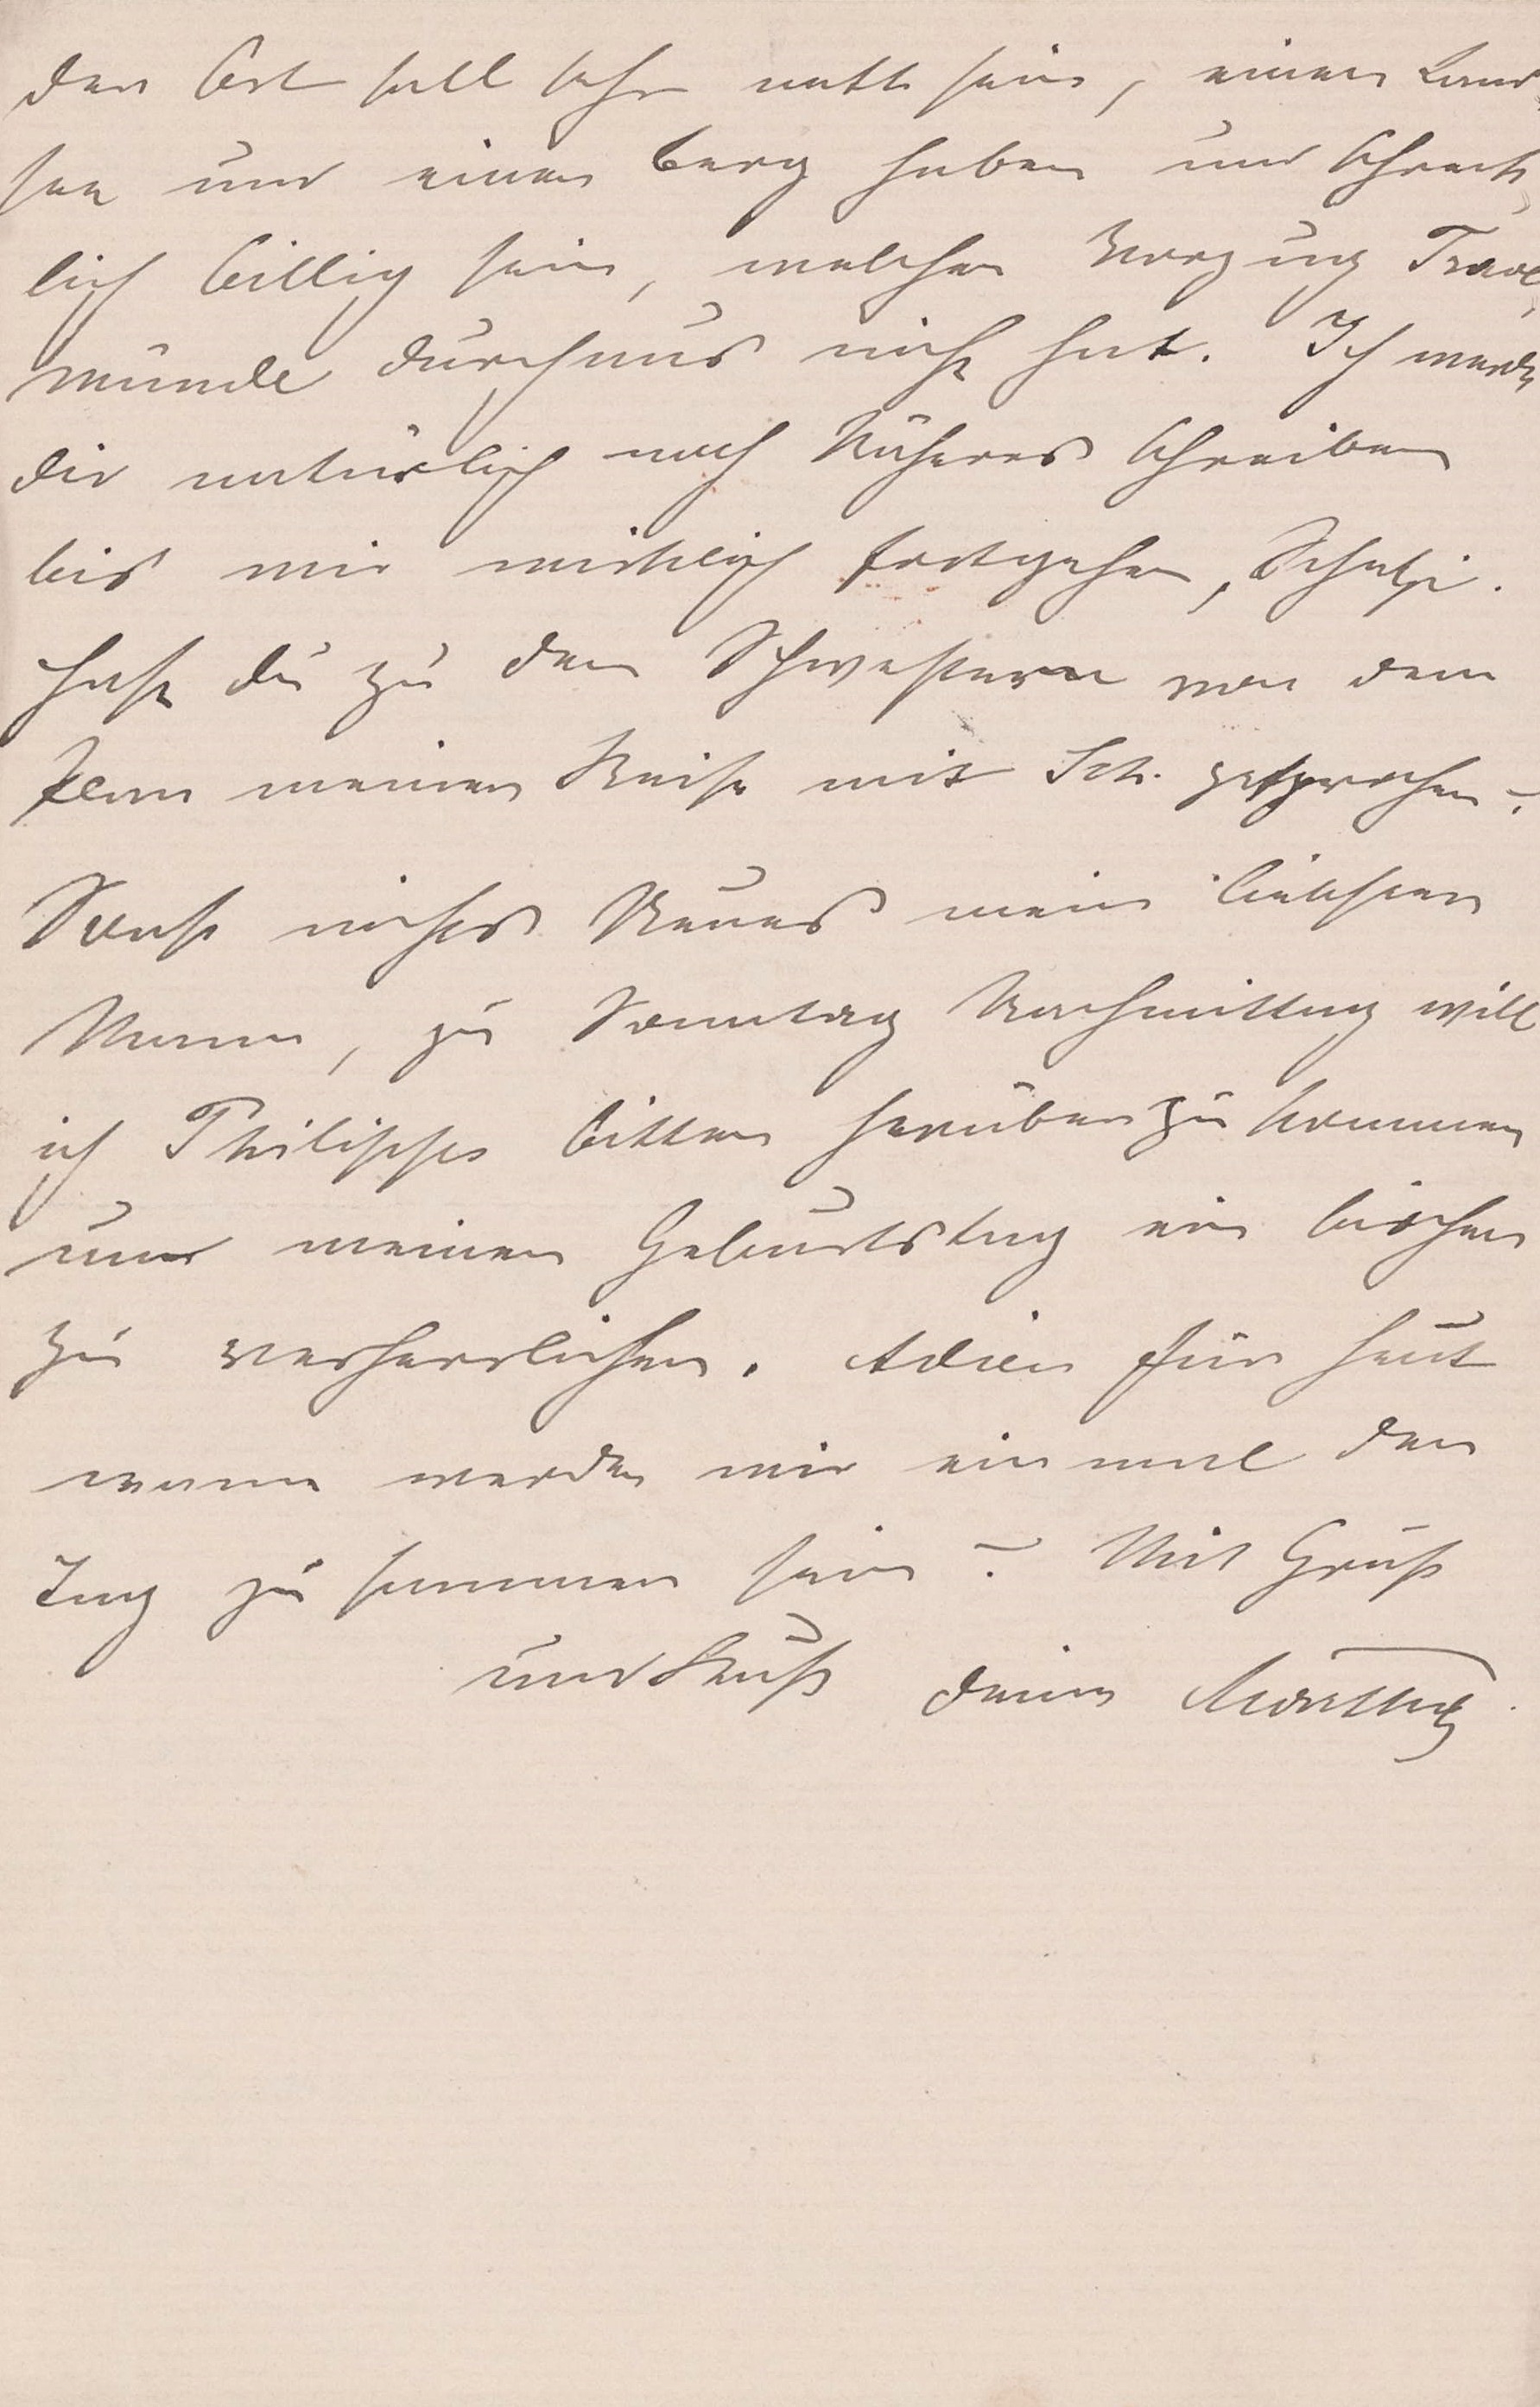 der Ort soll sehr nett sein, einen Land-
see und einen Berg haben und schreck-
lich billig sein, welchen Vorzug Trave-
münde durchaus nicht hat. Ich werde
dir natürlich noch Näheres schreiben
bis wir wirklich fortgehen, Schatzi.
Hast du zu den Schwestern von dem
Plan meiner Reise mit Sch. gesprochen?
Sonst nichts Neues mein liebster
Mann, zu Sonntag Nachmittag will
ich Philipps bitten herüberzukommen
um meinen Geburtstag ein bischen
zu verherrlichen. Adieu für heut
wann werden wir einmal den
Tag zusammen sein? Mit Gruß
und Kuß deine